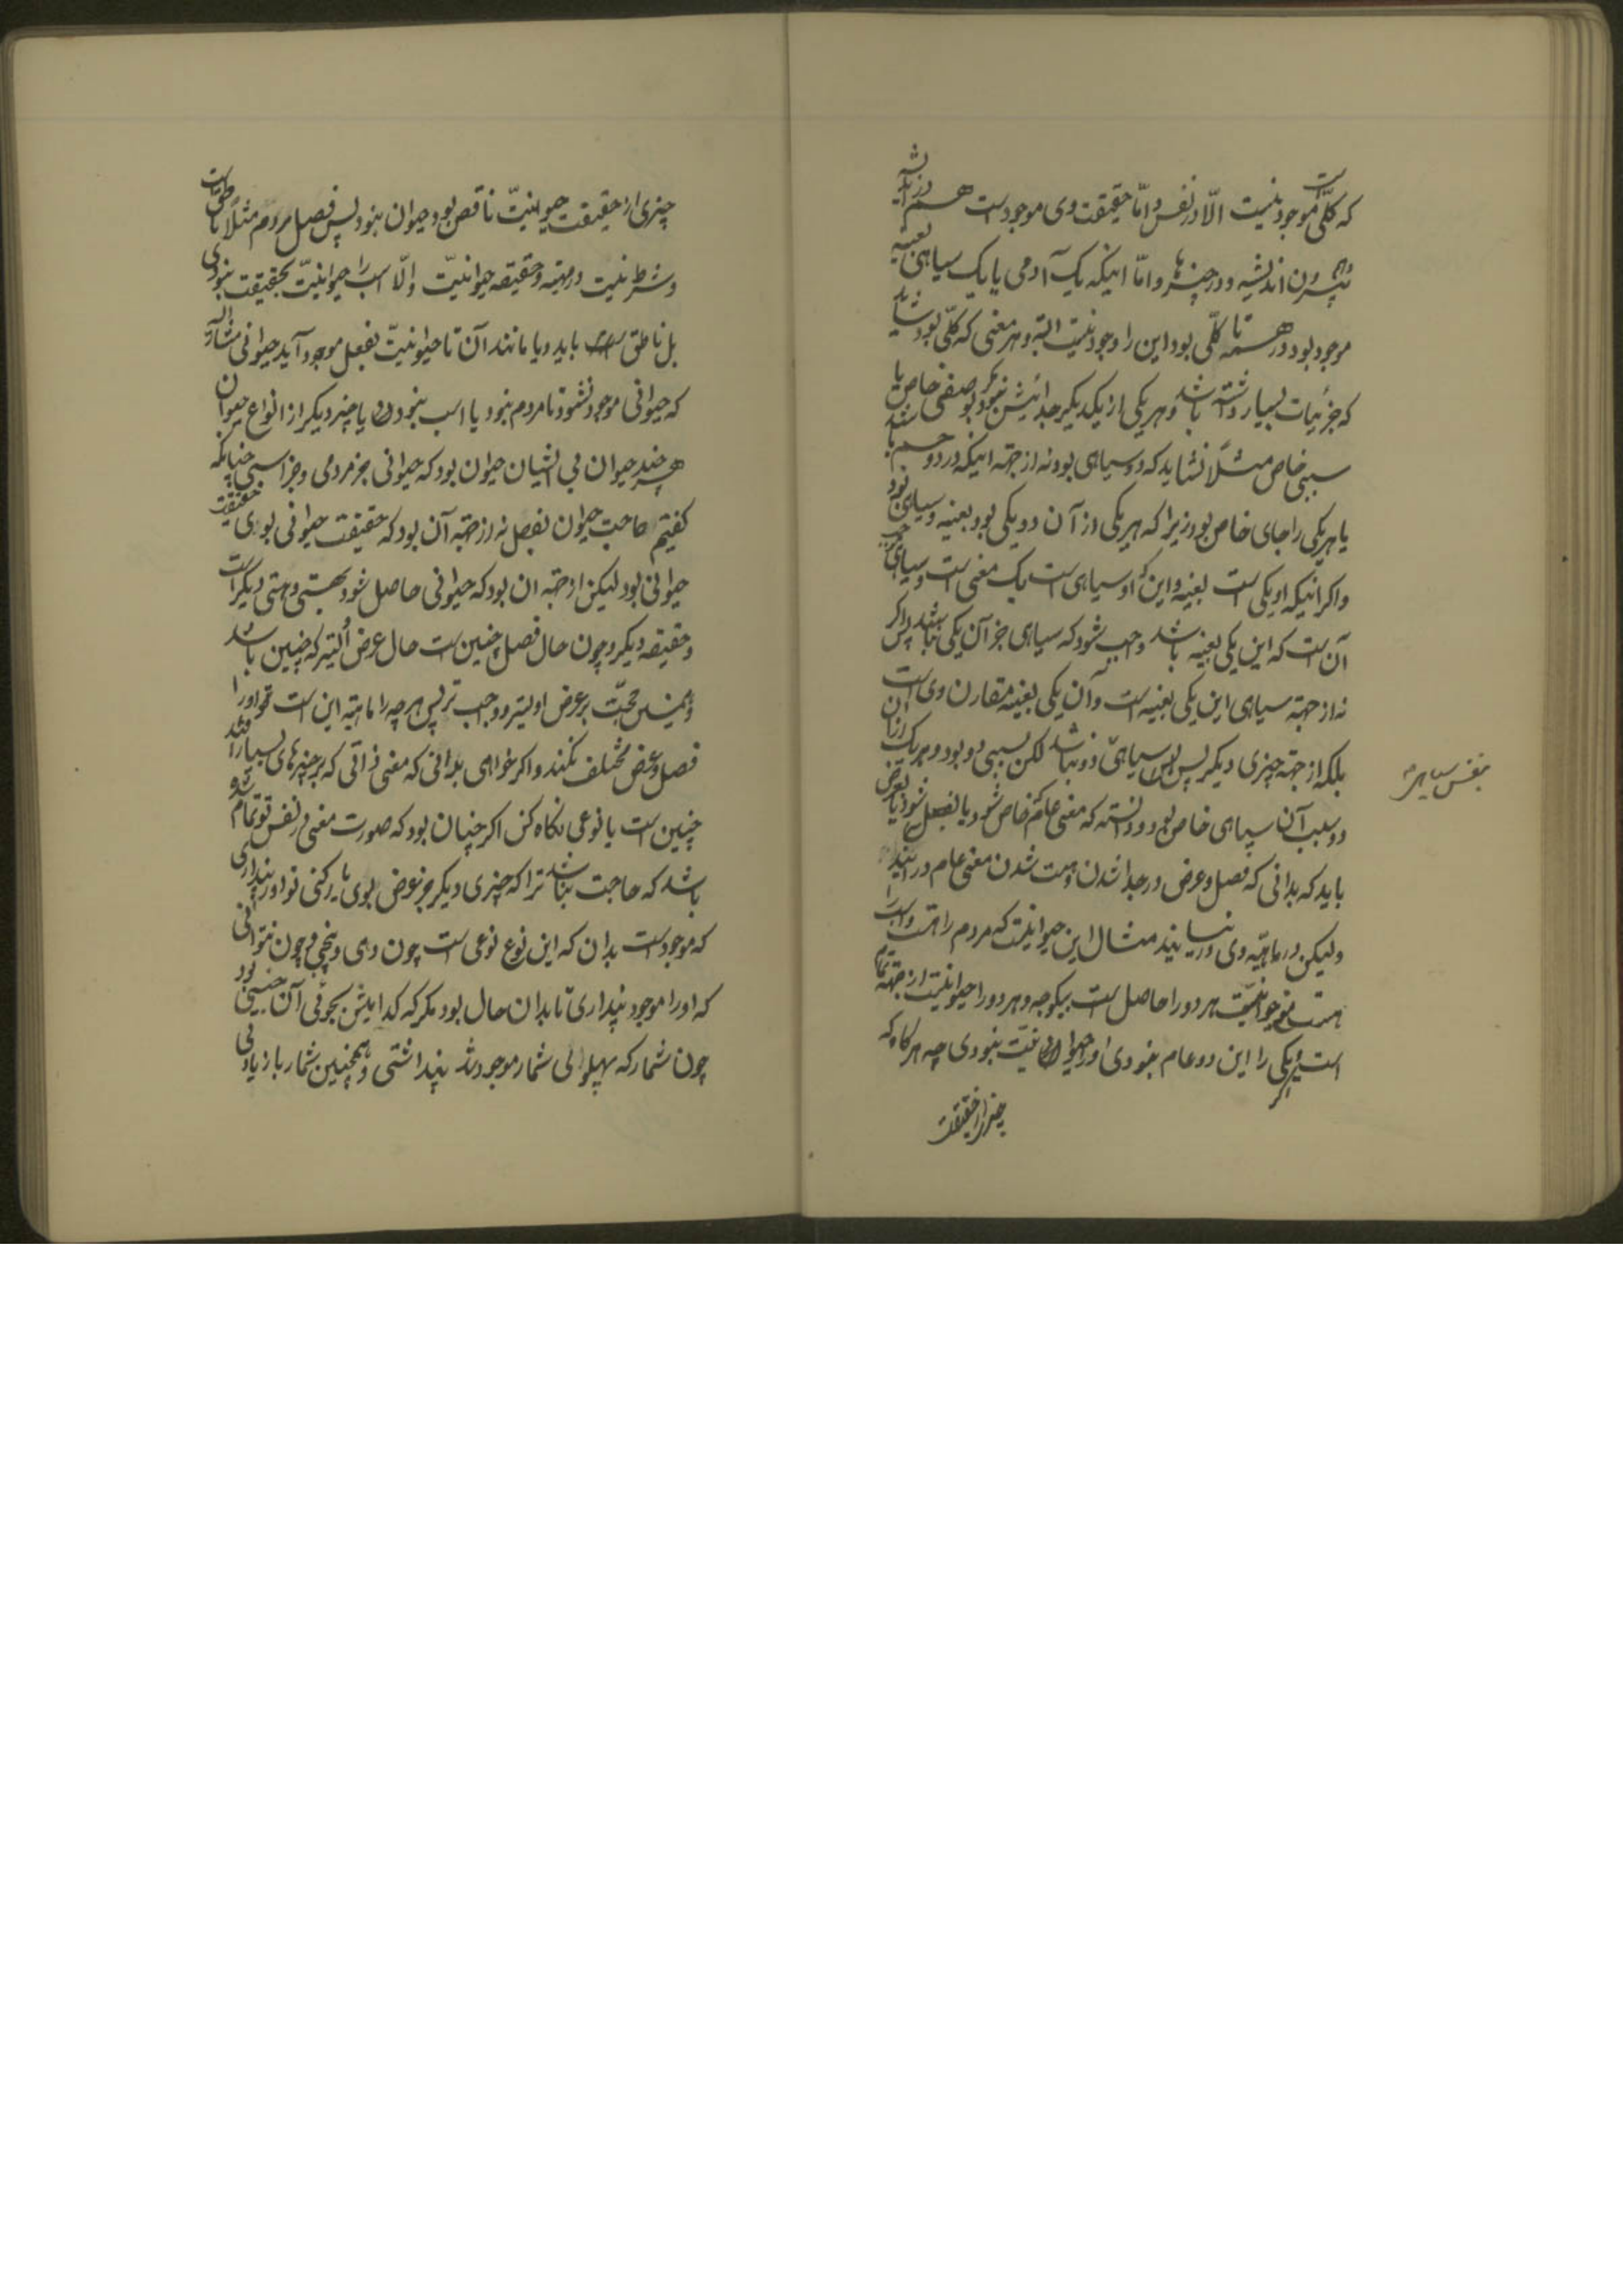 که کلی موجود نیست الا در نفس و اما حقیقت وی موجود است هم در اندیشه
و هم بیرون اندیشه و در چیزها و اما اینکه یک آدمی یا یک سیاهی بعینه
موجود بود و در همه تا کلی بود این را وجود نیست البته و هر معنی که کلی بود نشاید
که جزئیات بسیار داشته باشد و هر یکی از یکدیگر جدائیش نبود مگر بوصفی خاص یا
سببی خاص مثلا نشاید که دو سیاهی بود نه از جهة اینکه در دو جسم باشند
یا هر یکی را جای خاص بود زیرا که هر یکی از آن دو یکی بود بعینه و سیاهی بود
و اگر اینکه او یکی است بعینه و این که او سیاهی است یک معنی است و سیاهی
آن است که این یکی بعینه باشد واجب شود که سیاهی جز آن یکی نباشد پس اگر
نه از جهة سیاهی این یکی بعینه است و آن یکی بعینه مقارن وی است
بلکه از جهة چیزی دیگر پس سیاهی دو نباشد لکن بسببی دو بود و هر یک از آن
دو بسبب آن سیاهی خاص بود و دانسته که معنی عام خاص شود یا بفصل شود یا بعرض
باید که بدانی که فصل و عرض در جدا شدن و هست شدن معنی عام در آیند
ولیکن در ماهیه وی در نیایند مثال این حیوانیت که مردم را هست و اسب را
هست حیوانیت هر دو را حاصل است بیکوجه و هر دو را حیوانیت از جهة تمام
است اگر یکی را این دو عام نبودی او را حیوانیت نبودی چه هرگاه که
چیزی از حقیقت
بنفس سیاهی
چیزی از حقیقت حیوانیت ناقص بود حیوان نبود پس فصل مردم مثلا ناطق است
و شرط نیست در مهیه و حقیقه حیوانیت و الا اسب را حیوانیت بحقیقت نبودی
بل ناطق باید و یا مانند آن تا حیوانیت بفعل موجود آید حیوانی مشار الیه
که حیوانی موجود نشود تا مردم نبود یا اسب نبود یا چیز دیگر از انواع حیوان
هر چند حیوان بی ایشان حیوان بود که حیوانی جز مردمی و جز اسبی چنانکه
گفتیم حاجت حیوان بفصل نه از جهة آن بود که حقیقت حیوانی بوی حقیقت
حیوانی بود لیکن از جهة ان بود که حیوانی حاصل شود بهستی و هستی دیگر است
و حقیقه دیگر و چون حال فصل چنین است حال عرض اولیتر که چنین باشد
و همین حجت بر عرض اولیتر و واجب تر پس هر چه را ماهیة این است او را
فصل و عرض مختلف نکند و اگر خواهی بدانی که معنی ذاتی که بر چیزهای بسیار افتد
چنین است یا نوعی نگاه کن اگر چنان بود که صورت معنی در نفس تو تمام شده
باشد که حاجت نباشد ترا که چیزی دیگر جز عرض بوی یار کنی تا او را پنداری
که موجود است بدان که این نوع نوعی است چون دهی و پنجی و چون نتوانی
که او را موجود پنداری تا بدان حال بود مگر که کدامیش بجوئی آن جنسی بود
چون شمار که پهلوالی شمار موجود شد پنداشتی و همچنین شمار باز یادنی